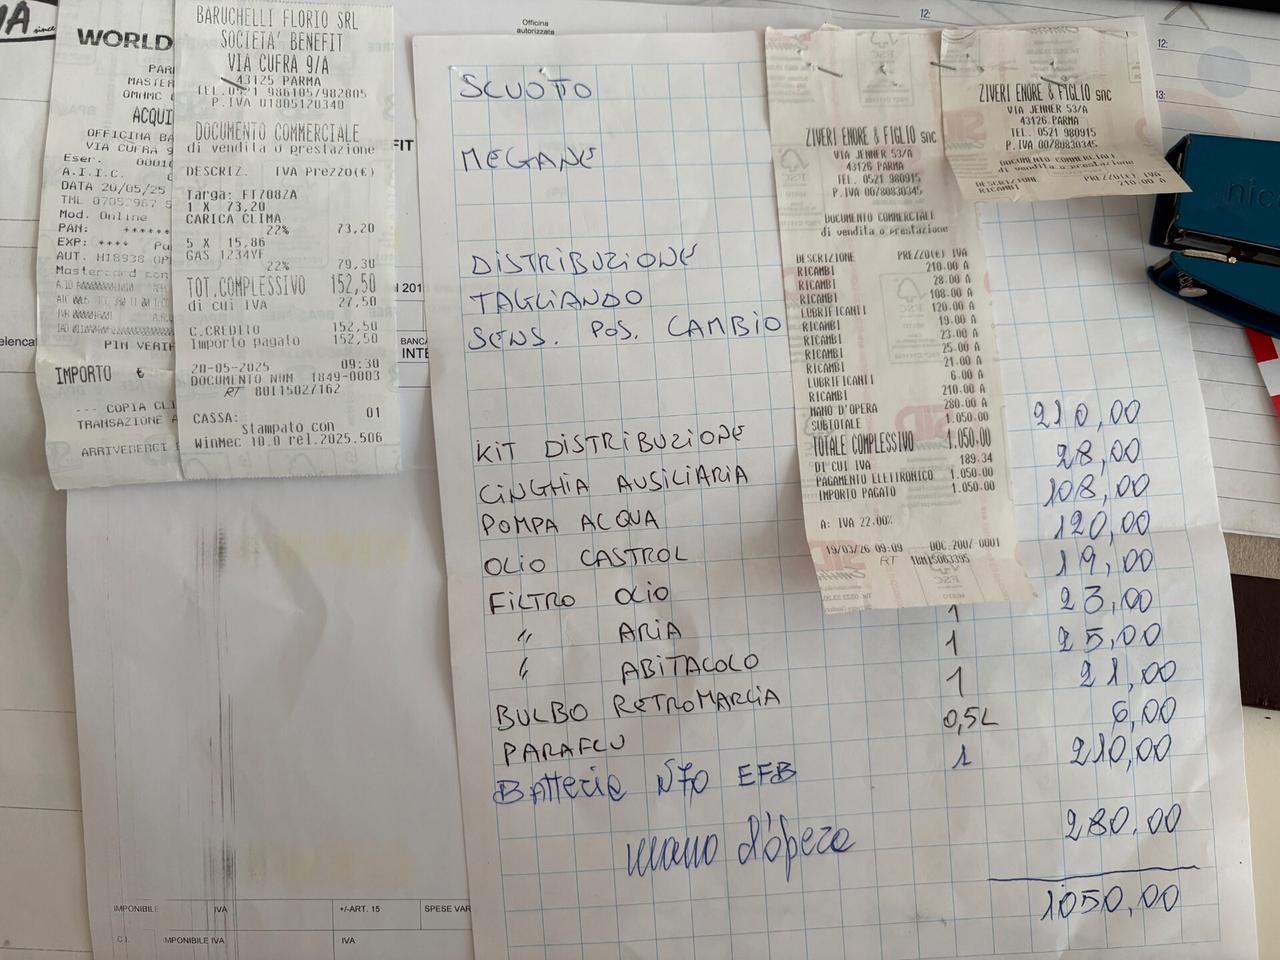 WORLD
ACQUI
OFFICINA BA
VIA CUFRA 9
Eser.
A.I.I.C.
DATA 20/05/25
Mod. Online
PAN:
EXP: ****
AUT. H18938
PIN VERIF
IMPORTO €
--- COPIA CLI
TRANSAZIONE A
ARRIVEDERCI E
BARUCHELLI FLORIO SRL
SOCIETA' BENEFIT
VIA CUFRA 9/A
43125 PARMA
TEL.0521 986105/982805
P.IVA 01805120340
DOCUMENTO COMMERCIALE
di vendita o prestazione
DESCRIZ. IVA Prezzo(€)
Targa:
1 X 73,20
CARICA CLIMA
22% 73,20
5 X 15,86
GAS 1234YF
22% 79,30
TOT.COMPLESSIVO 152,50
di cui IVA 27,50
C.CREDITO 152,50
Importo pagato 152,50
20-05-2025 09:30
DOCUMENTO NUM 1849-0003
RT
CASSA: 01
Stampato con
WinMec 10.0 rel.2025.506
Officina
autorizzata
12:
12:
13:
SCUOTTO
MEGANE
DISTRIBUZIONE
TAGLIANDO
SENS. POS. CAMBIO
KIT DISTRIBUZIONE 210,00
CINGHIA AUSILIARIA 28,00
POMPA ACQUA 108,00
OLIO CASTROL 120,00
FILTRO OLIO 19,00
" ARIA 1 23,00
" ABITACOLO 1 25,00
BULBO RETROMARCIA 1 21,00
PARAFLU 0,5L 6,00
Batteria N70 EFB 1 210,00
mano d'opera 280,00
1050,00
ZIVERI ENORE & FIGLIO snc
VIA JENNER 53/A
43126 PARMA
TEL. 0521 980915
P.IVA 00780830345
DOCUMENTO COMMERCIALE
di vendita o prestazione
DESCRIZIONE PREZZO(€) IVA
RICAMBI 210.00 A
RICAMBI 28.00 A
RICAMBI 108.00 A
LUBRIFICANTI 120.00 A
RICAMBI 19.00 A
RICAMBI 23.00 A
RICAMBI 25.00 A
RICAMBI 21.00 A
LUBRIFICANTI 6.00 A
RICAMBI 210.00 A
MANO D'OPERA 280.00 A
SUBTOTALE 1.050.00
TOTALE COMPLESSIVO 1.050.00
DI CUI IVA 189.34
PAGAMENTO ELETTRONICO 1.050.00
IMPORTO PAGATO 1.050.00
A: IVA 22.00%
19/03/26 09:09 DOC.2007-0001
RT
ZIVERI ENORE & FIGLIO snc
VIA JENNER 53/A
43126 PARMA
TEL. 0521 980915
P.IVA 00780830345
DOCUMENTO COMMERCIALE
di vendita o prestazione
DESCRIZIONE PREZZO(€) IVA
RICAMBI 210.00 A
IMPONIBILE IVA +/-ART. 15 SPESE VAR
C.I. IMPONIBILE IVA IVA